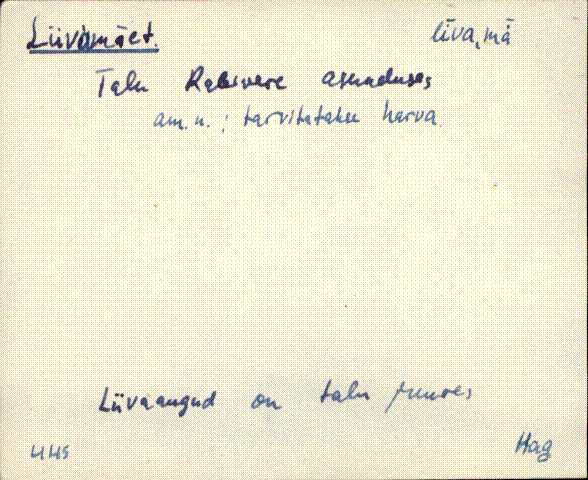 Liivamäet.
līva,mä
Talu Rabivere asunduses
am. n. ; tarvitatakse harva
Liivaaugud on talu juures
445
Hag